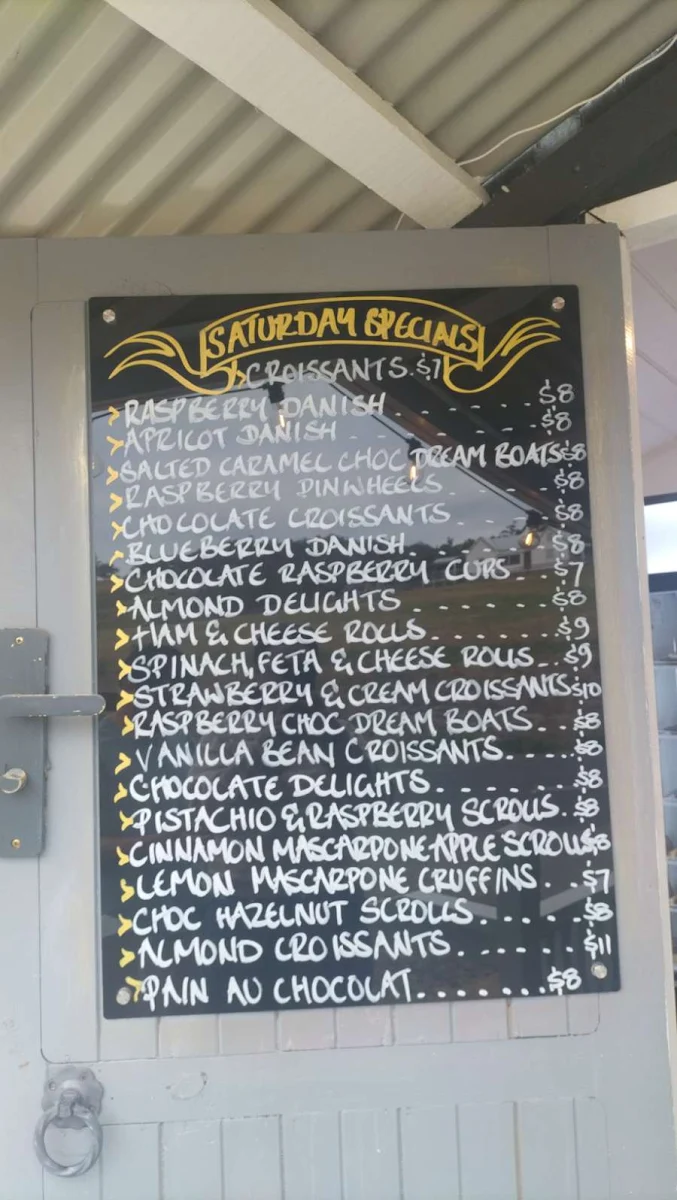 SATURDAY SPECIALS
CROISSANTS. $7
> RASPBERRY DANISH . - - - - - $8
> APRICOT DANISH - - - - - - $8
> SALTED CARAMEL CHOC DREAM BOATS $8
> RASPBERRY PINWHEELS - - - - $8
> CHOCOLATE CROISSANTS. - - - - $8
> BLUEBERRY DANISH. - - - - - $8
> CHOCOLATE RASPBERRY CUPS. - - $7
> ALMOND DELIGHTS . . . . . . . $8
> HAM & CHEESE ROLLS. . . . . . $9
> SPINACH, FETA & CHEESE ROLLS. . . $9
> STRAWBERRY & CREAM CROISSANTS $10
> RASPBERRY CHOC DREAM BOATS. . . $8
> VANILLA BEAN CROISSANTS. . . . $8
> CHOCOLATE DELIGHTS. . . . . . $8
> PISTACHIO & RASPBERRY SCROLLS. . $8
> CINNAMON MASCARPONE APPLE SCROLLS $8
> LEMON MASCARPONE CRUFFINS . . . $7
> CHOC HAZELNUT SCROLLS. . . . . $8
> ALMOND CROISSANTS. . . . . . . $11
> PAIN AU CHOCOLAT. . . . . . . $8